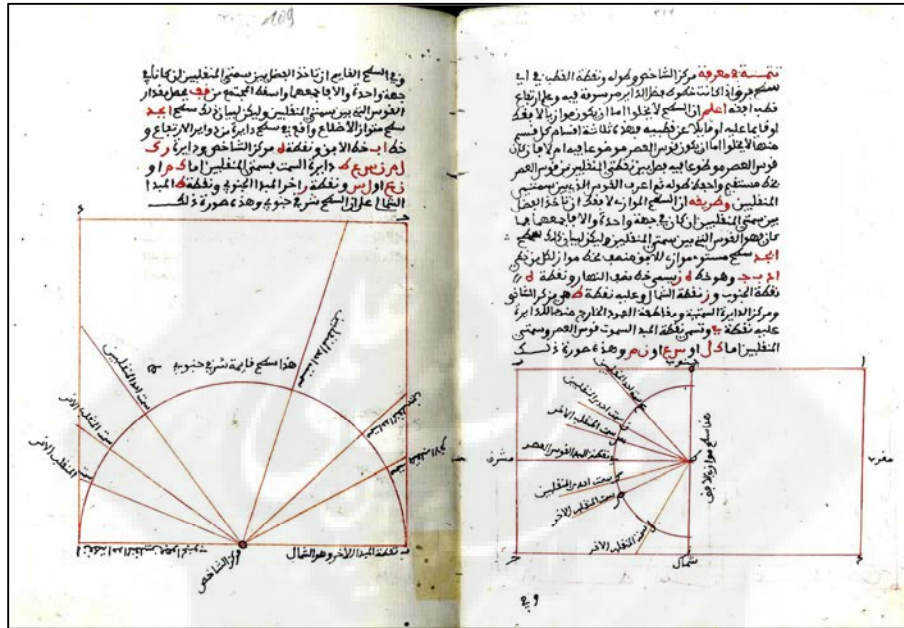 تتمة في معرفة مركز الشاخص وطوله ونقطة القطب في أي
سطح فرض اذا كانت خطوط فضل الداير مرسومة فيه وعلم ارتفاع
قطب افقه اعلم ان السطح لا يخلوا اما ان يكون موازيا لافقك
او قايما عليه او مايلا عن قطبيه فهذه ثلاثة اقسام كل قسم
منها لا يخلوا اما ان يكون قوس العصر موضوعا فيه ام لا فان كان
قوس العصر موضوعا فيه فصل بين نقطتي المنقلبين من قوس العصر
بخط مستقيم واحفظ طوله ثم اعرف القوس الذي بين سمتي
المنقلبين وطريقه ان السطح الموازي لافقك ان تاخذ الفضل
بين سمتي المنقلبين ان كان في جهة واحدة والا فاجمعهما فما
كان فهو القوس التي بين سمتي المنقلبين وليكن لبيان ذلك سطح
ابجد سطح مستو مواز للافق
وهو خط ه ز يسمى خط نصف النهار ونقطة ه
نقطة الجنوب و ز نقطة الشمال وعليه نقطة ط هي مركز الشاخص
ومركز الدايرة السمتية ومقاطعة العمود الخارج منها للدايرة
عليه نقطة ي وتسمى نقطة المبدا لسموت قوس العصر وسمتي
المنقلبين اما ك ل او س ع او ن م وهذه صورة ذلك
ا
جنوب
مغرب
مشرق
هذا سطح موازي للافق
سمت احد المنقلبين
سمت المنقلب الاخر
نقطة المبدا لقوس العصر
سمت احد المنقلبين
سمت المنقلب الاخر
سمت المنقلب الاخر
شمال
وفي
109
وفي السطح القايم ان تاخذ الفضل بين سمتي المنقلبين ان كانا في
جهة واحدة والا فاجمعهما واسقط المجتمع من قف يفضل مقدار
القوس التي بين سمتي المنقلبين وليكن لبيان ذلك سطح ابجد
سطح متوازي الاضلاع واقع في سطح دايرة من دواير الارتفاع و
خط اب خط الافق ونقطة ه مركز الشاخص ودايرة
دايرة السمت بسمتي المنقلبين اما
ونقطة اخر المبدا الجنوبي ونقطة ط المبدا
الشمالي على ان السطح شرقي جنوبي وهذه صورة ذلك
هذا سطح قايمة شرقي جنوبي
سمت احد المنقلبين
سمت احد المنقلبين
سمت المنقلب الاخر
سمت المنقلب الاخر
سمت احد المنقلبين
سمت المنقلب الاخر
نقطة المبدا الاخر وهو الشمال
مركز الشاخص